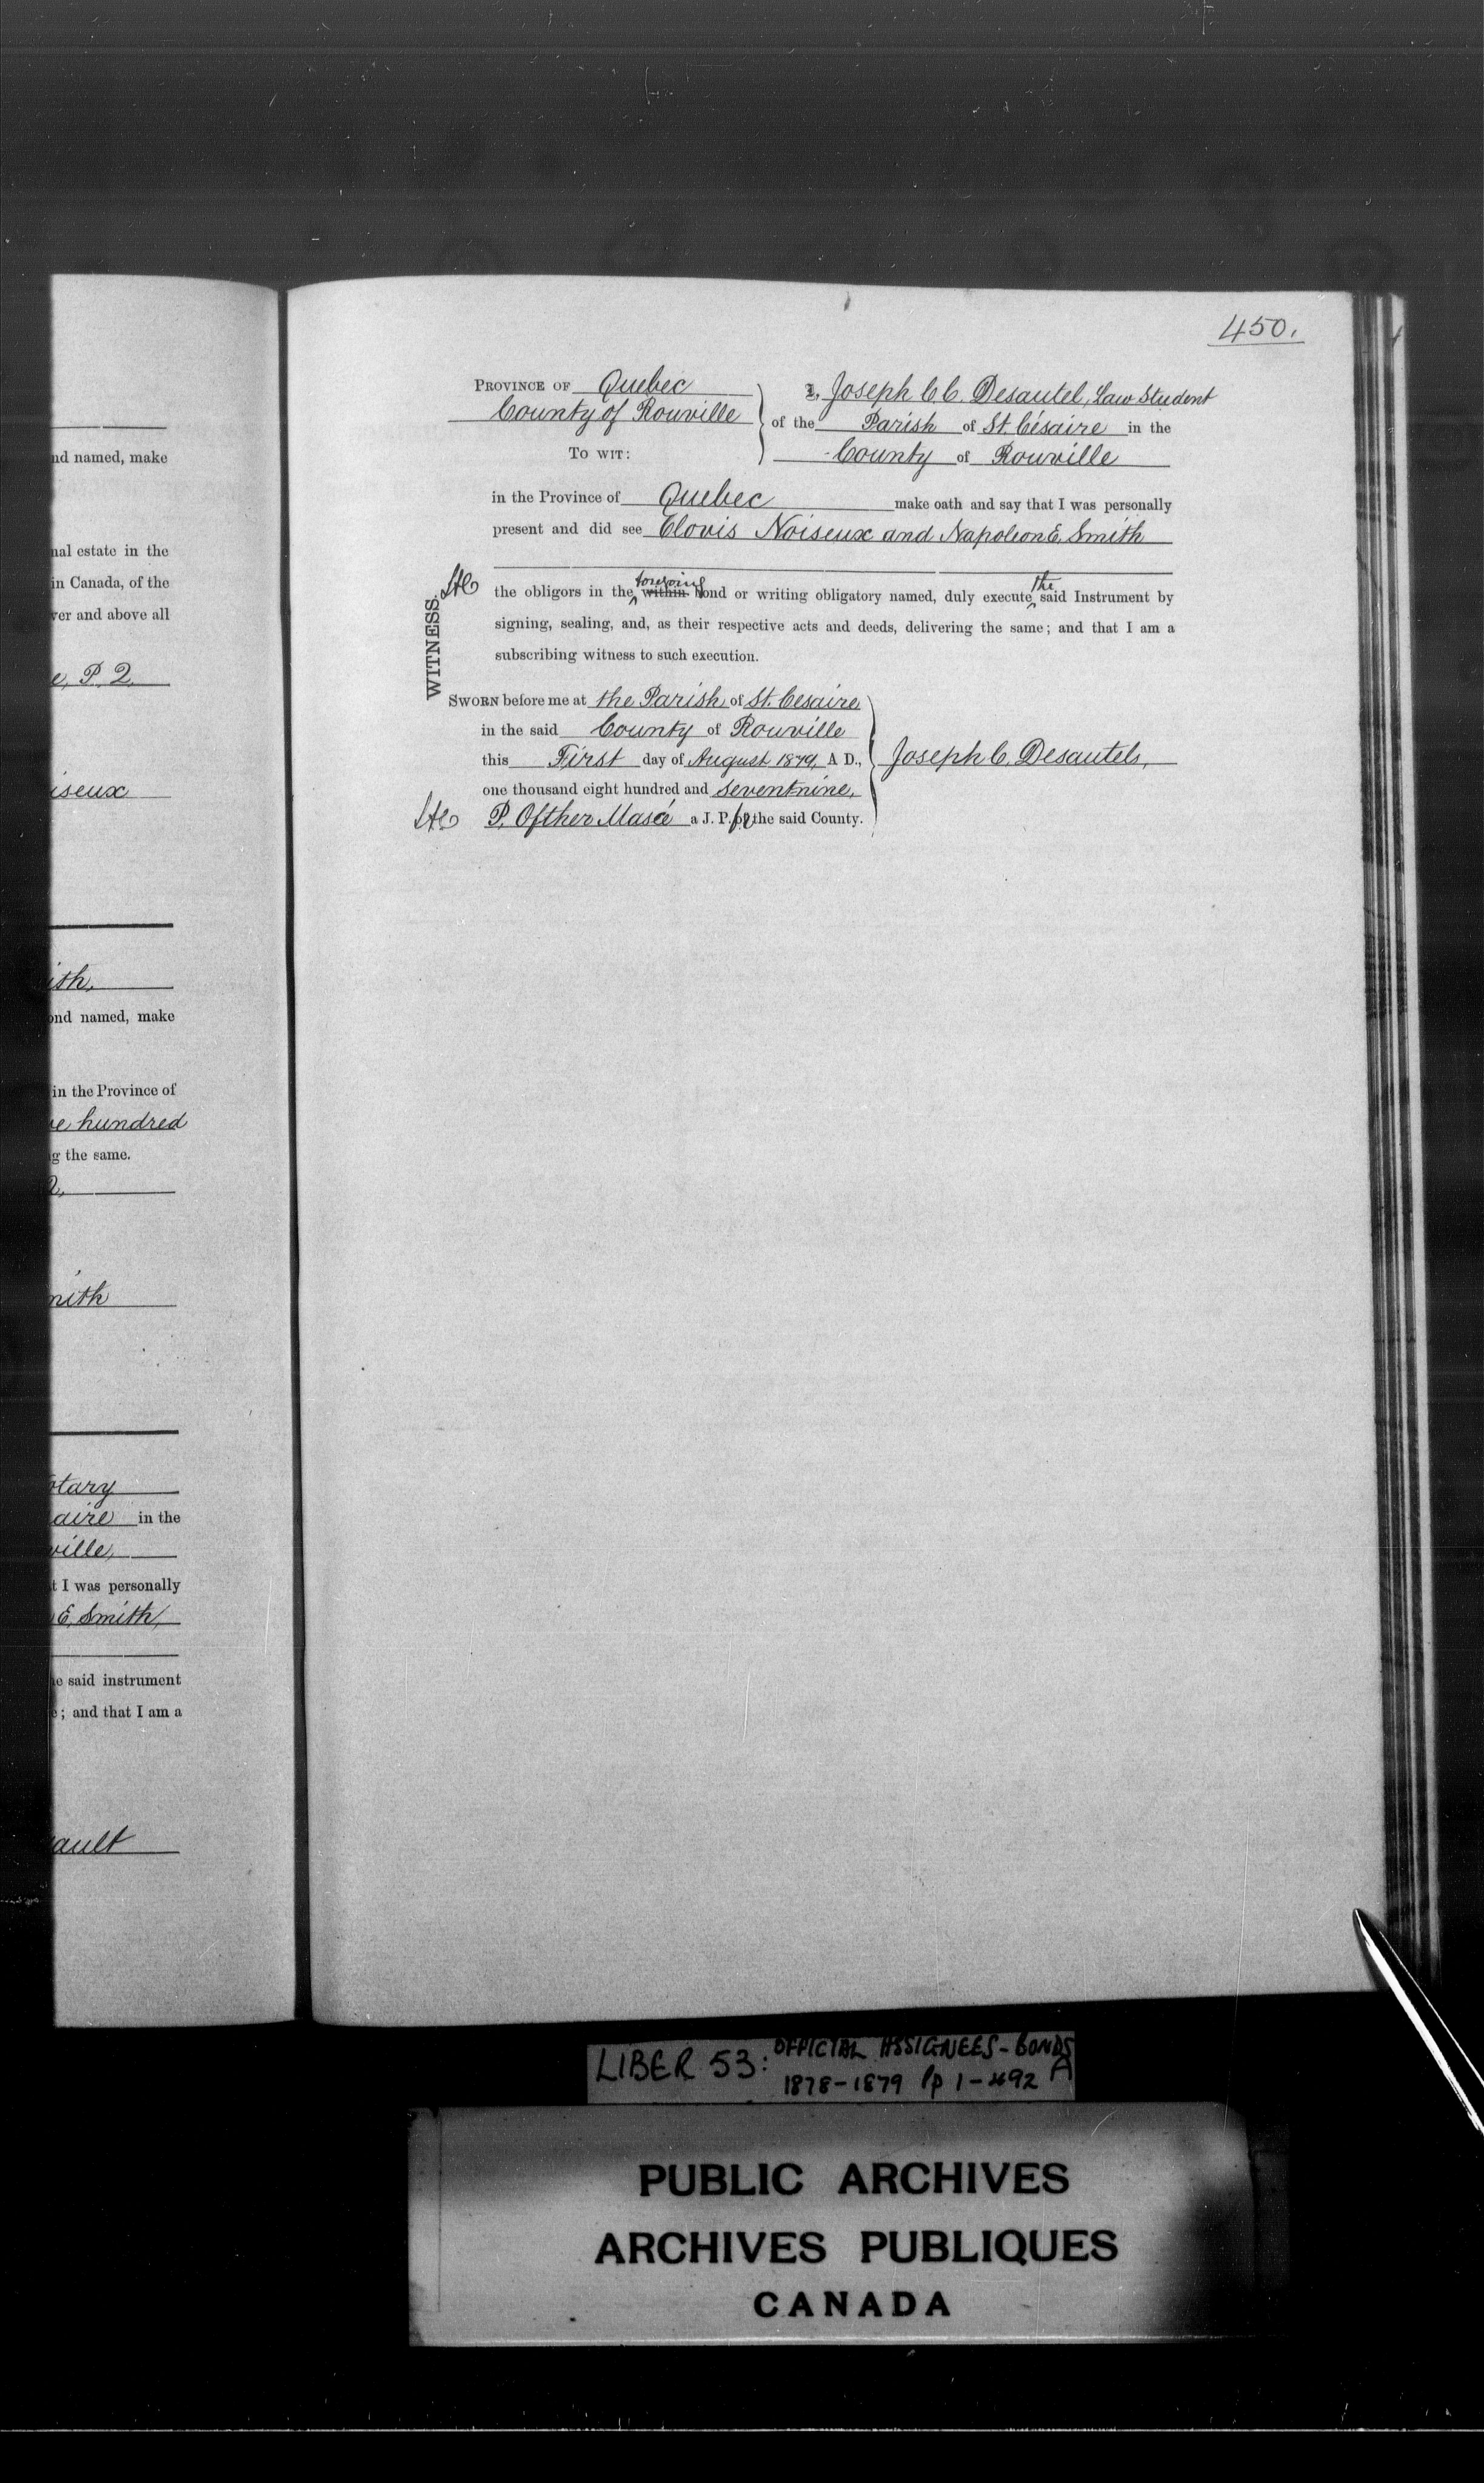 nd named, make
nal estate in the
in Canada, of the
ver and above all
e, P. Q.
iseux
ith,
ond named, make
in the Province of
ve hundred
g the same.
Q,
mith
otary
aire in the
ville,
t I was personally
E. Smith,
he said instrument
e; and that I am a
ault
450.
PROVINCE OF Quebec
County of Rouville
TO WIT:
I, Joseph C. C. Desautel, Law Student
of the Parish of St. Césaire in the
County of Rouville
in the Province of Quebec make oath and say that I was personally
present and did see Clovis Noiseux and Napoleon E. Smith
WITNESS.
the obligors in the foregoing within bond or writing obligatory named, duly execute the said Instrument by
signing, sealing, and, as their respective acts and deeds, delivering the same; and that I am a
subscribing witness to such execution.
SWORN before me at the Parish of St. Cesaire
in the said County of Rouville
this First day of August 1879, A D.,
one thousand eight hundred and seventnine,
P. Ofther Masé a J. P. for the said County.
Joseph C. Desautels,
LIBER 53: OFFICIAL ASSIGNEES - BONDS
1878-1879 pp 1-492 A
PUBLIC ARCHIVES
ARCHIVES PUBLIQUES
CANADA